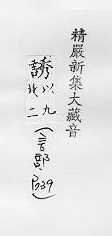 精嚴新集大藏音
誘 以九
 北二
(言部, P.39)